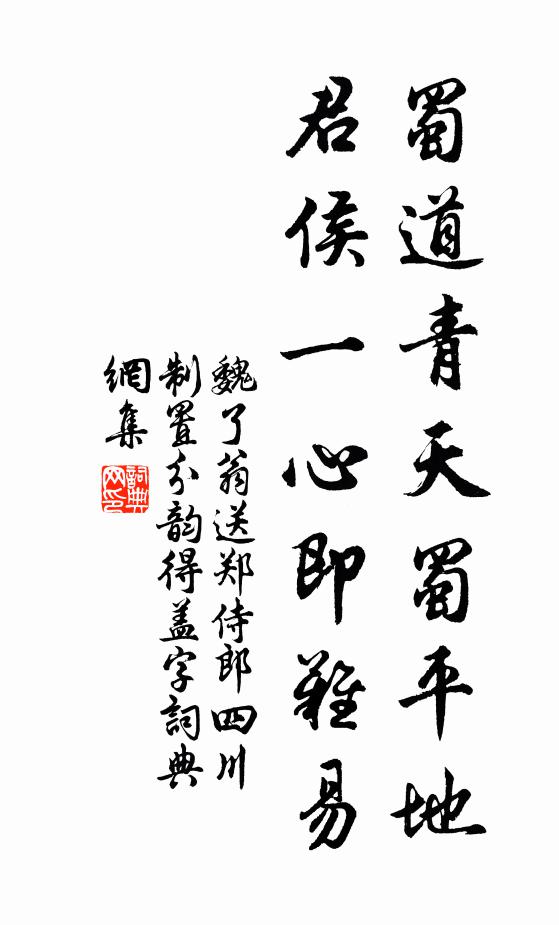 蜀道青天蜀平地
君侯一心即難易
魏了翁送郑侍郎四川
制置分韵得盖字詞典
網集
詞典網印